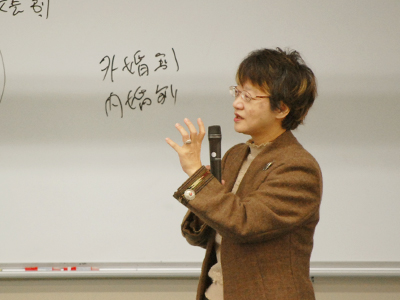 外婚制
内婚制